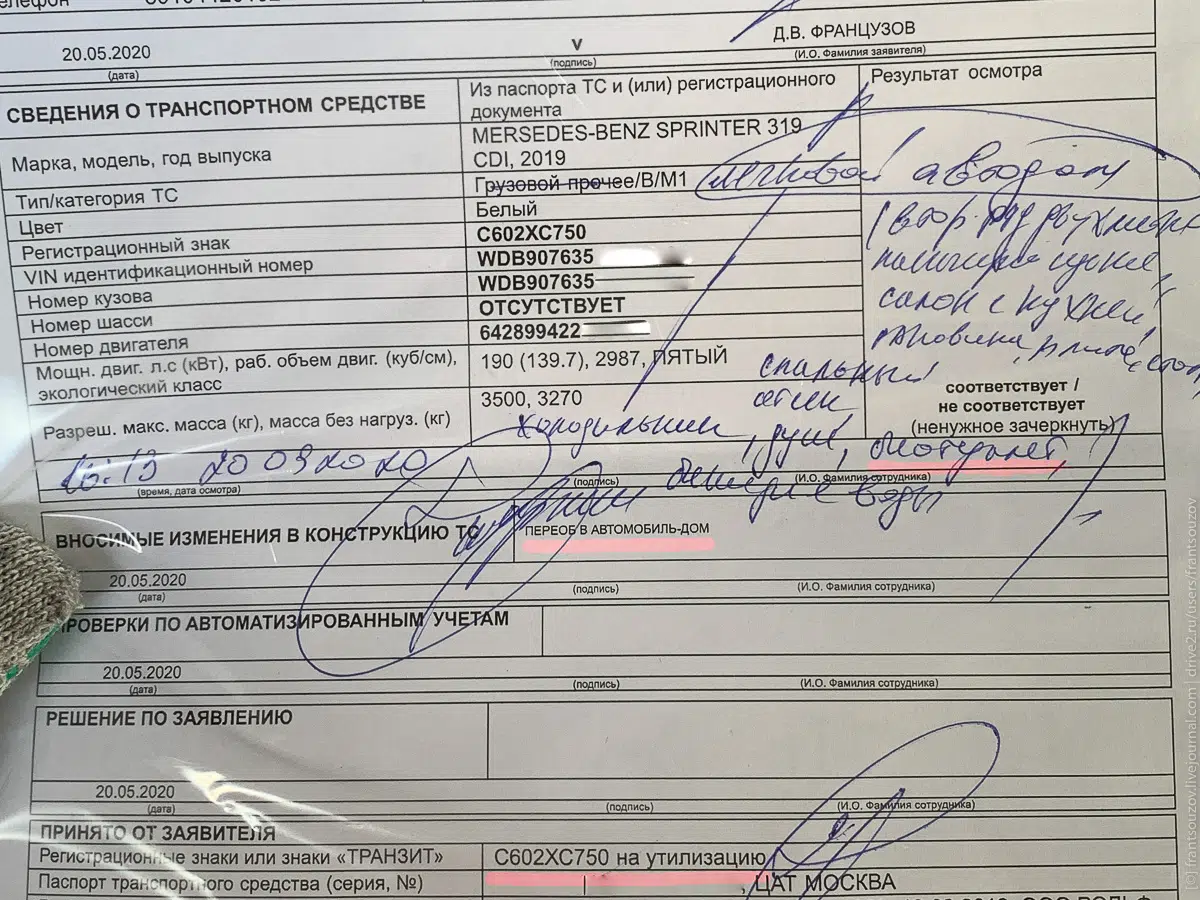 20.05.2020 v Д.В. ФРАНЦУЗОВ
(дата) (подпись) (И.О. Фамилия заявителя)
СВЕДЕНИЯ О ТРАНСПОРТНОМ СРЕДСТВЕ
Из паспорта ТС и (или) регистрационного
документа
Результат осмотра
Марка, модель, год выпуска
MERSEDES-BENZ SPRINTER 319
CDI, 2019
Тип/категория ТС Грузовой прочее/B/M1 легковой автодом
Цвет Белый
Регистрационный знак С602ХС750
VIN идентификационный номер WDB907635
Номер кузова WDB907635
Номер шасси ОТСУТСТВУЕТ
Номер двигателя 642899422
Мощн. двиг. л.с (кВт), раб. объем двиг. (куб/см),
экологический класс
190 (139.7), 2987, ПЯТЫЙ
салон с кухней,
спальный
Разреш. макс. масса (кг), масса без нагруз. (кг) 3500, 3270
соответствует /
не соответствует
(ненужное зачеркнуть)
холодильник, душ, биотуалет,
16:13 20 09 2020
(время, дата осмотра) (подпись) (И.О. Фамилия сотрудника)
воды
ВНОСИМЫЕ ИЗМЕНЕНИЯ В КОНСТРУКЦИЮ ТС ПЕРЕОБ В АВТОМОБИЛЬ-ДОМ
20.05.2020
(дата) (подпись) (И.О. Фамилия сотрудника)
ПРОВЕРКИ ПО АВТОМАТИЗИРОВАННЫМ УЧЕТАМ
20.05.2020
(дата) (подпись) (И.О. Фамилия сотрудника)
РЕШЕНИЕ ПО ЗАЯВЛЕНИЮ
20.05.2020
(дата) (подпись) (И.О. Фамилия сотрудника)
ПРИНЯТО ОТ ЗАЯВИТЕЛЯ
Регистрационные знаки или знаки «ТРАНЗИТ» С602ХС750 на утилизацию
Паспорт транспортного средства (серия, №) , ЦАТ МОСКВА
(c) frantsouzov.livejournal.com | drive2.ru/users/frantsouzov